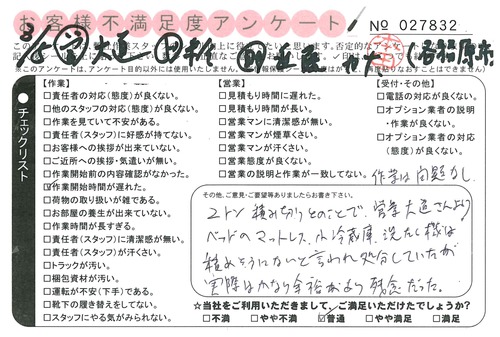 お客様不満足度アンケート
No 027832
チェックリスト
【作業】
□責任者の対応（態度）が良くない。
□他のスタッフの対応（態度）が良くない。
□作業を見ていて不安がある。
□責任者（スタッフ）に好感が持てない。
□お客様への挨拶が出来ていない。
□ご近所への挨拶・気遣いが無い。
□作業開始前の内容確認がなかった。
☑作業開始時間が遅れた。
□荷物の取り扱いが雑である。
□お部屋の養生が出来ていない。
□作業時間が長すぎる。
□責任者（スタッフ）に清潔感が無い。
□責任者（スタッフ）が汗くさい。
□トラックが汚い。
□梱包資材が汚い。
□運転が不安（下手）である。
□靴下の履き替えをしてない。
□スタッフにやる気がみられない。
【営業】
□見積もり時間に遅れた。
□見積もり時間が長い。
□営業マンに清潔感が無い。
□営業マンが煙草くさい。
□営業マンが汗くさい。
□営業態度が良くない。
□営業の説明と作業が一致してない。
【受付・その他】
□電話の対応が良くない。
□オプション業者の説明
・作業が良くない。
□オプション業者の対応
（態度）が良くない。
作業は問題なし
その他、ご意見・ご要望等ありましたらお書き下さい。
2トン積み切りとのことで、営業大道さんより
ベッドのマットレス、小冷蔵庫、洗たく機は
積めそうにないと言われ処分していたが
実際はかなり余裕があり残念だった。
☆当社をご利用いただきまして、ご満足いただけたでしょうか？
□不満 □やや不満 ☑普通 □やや満足 □満足